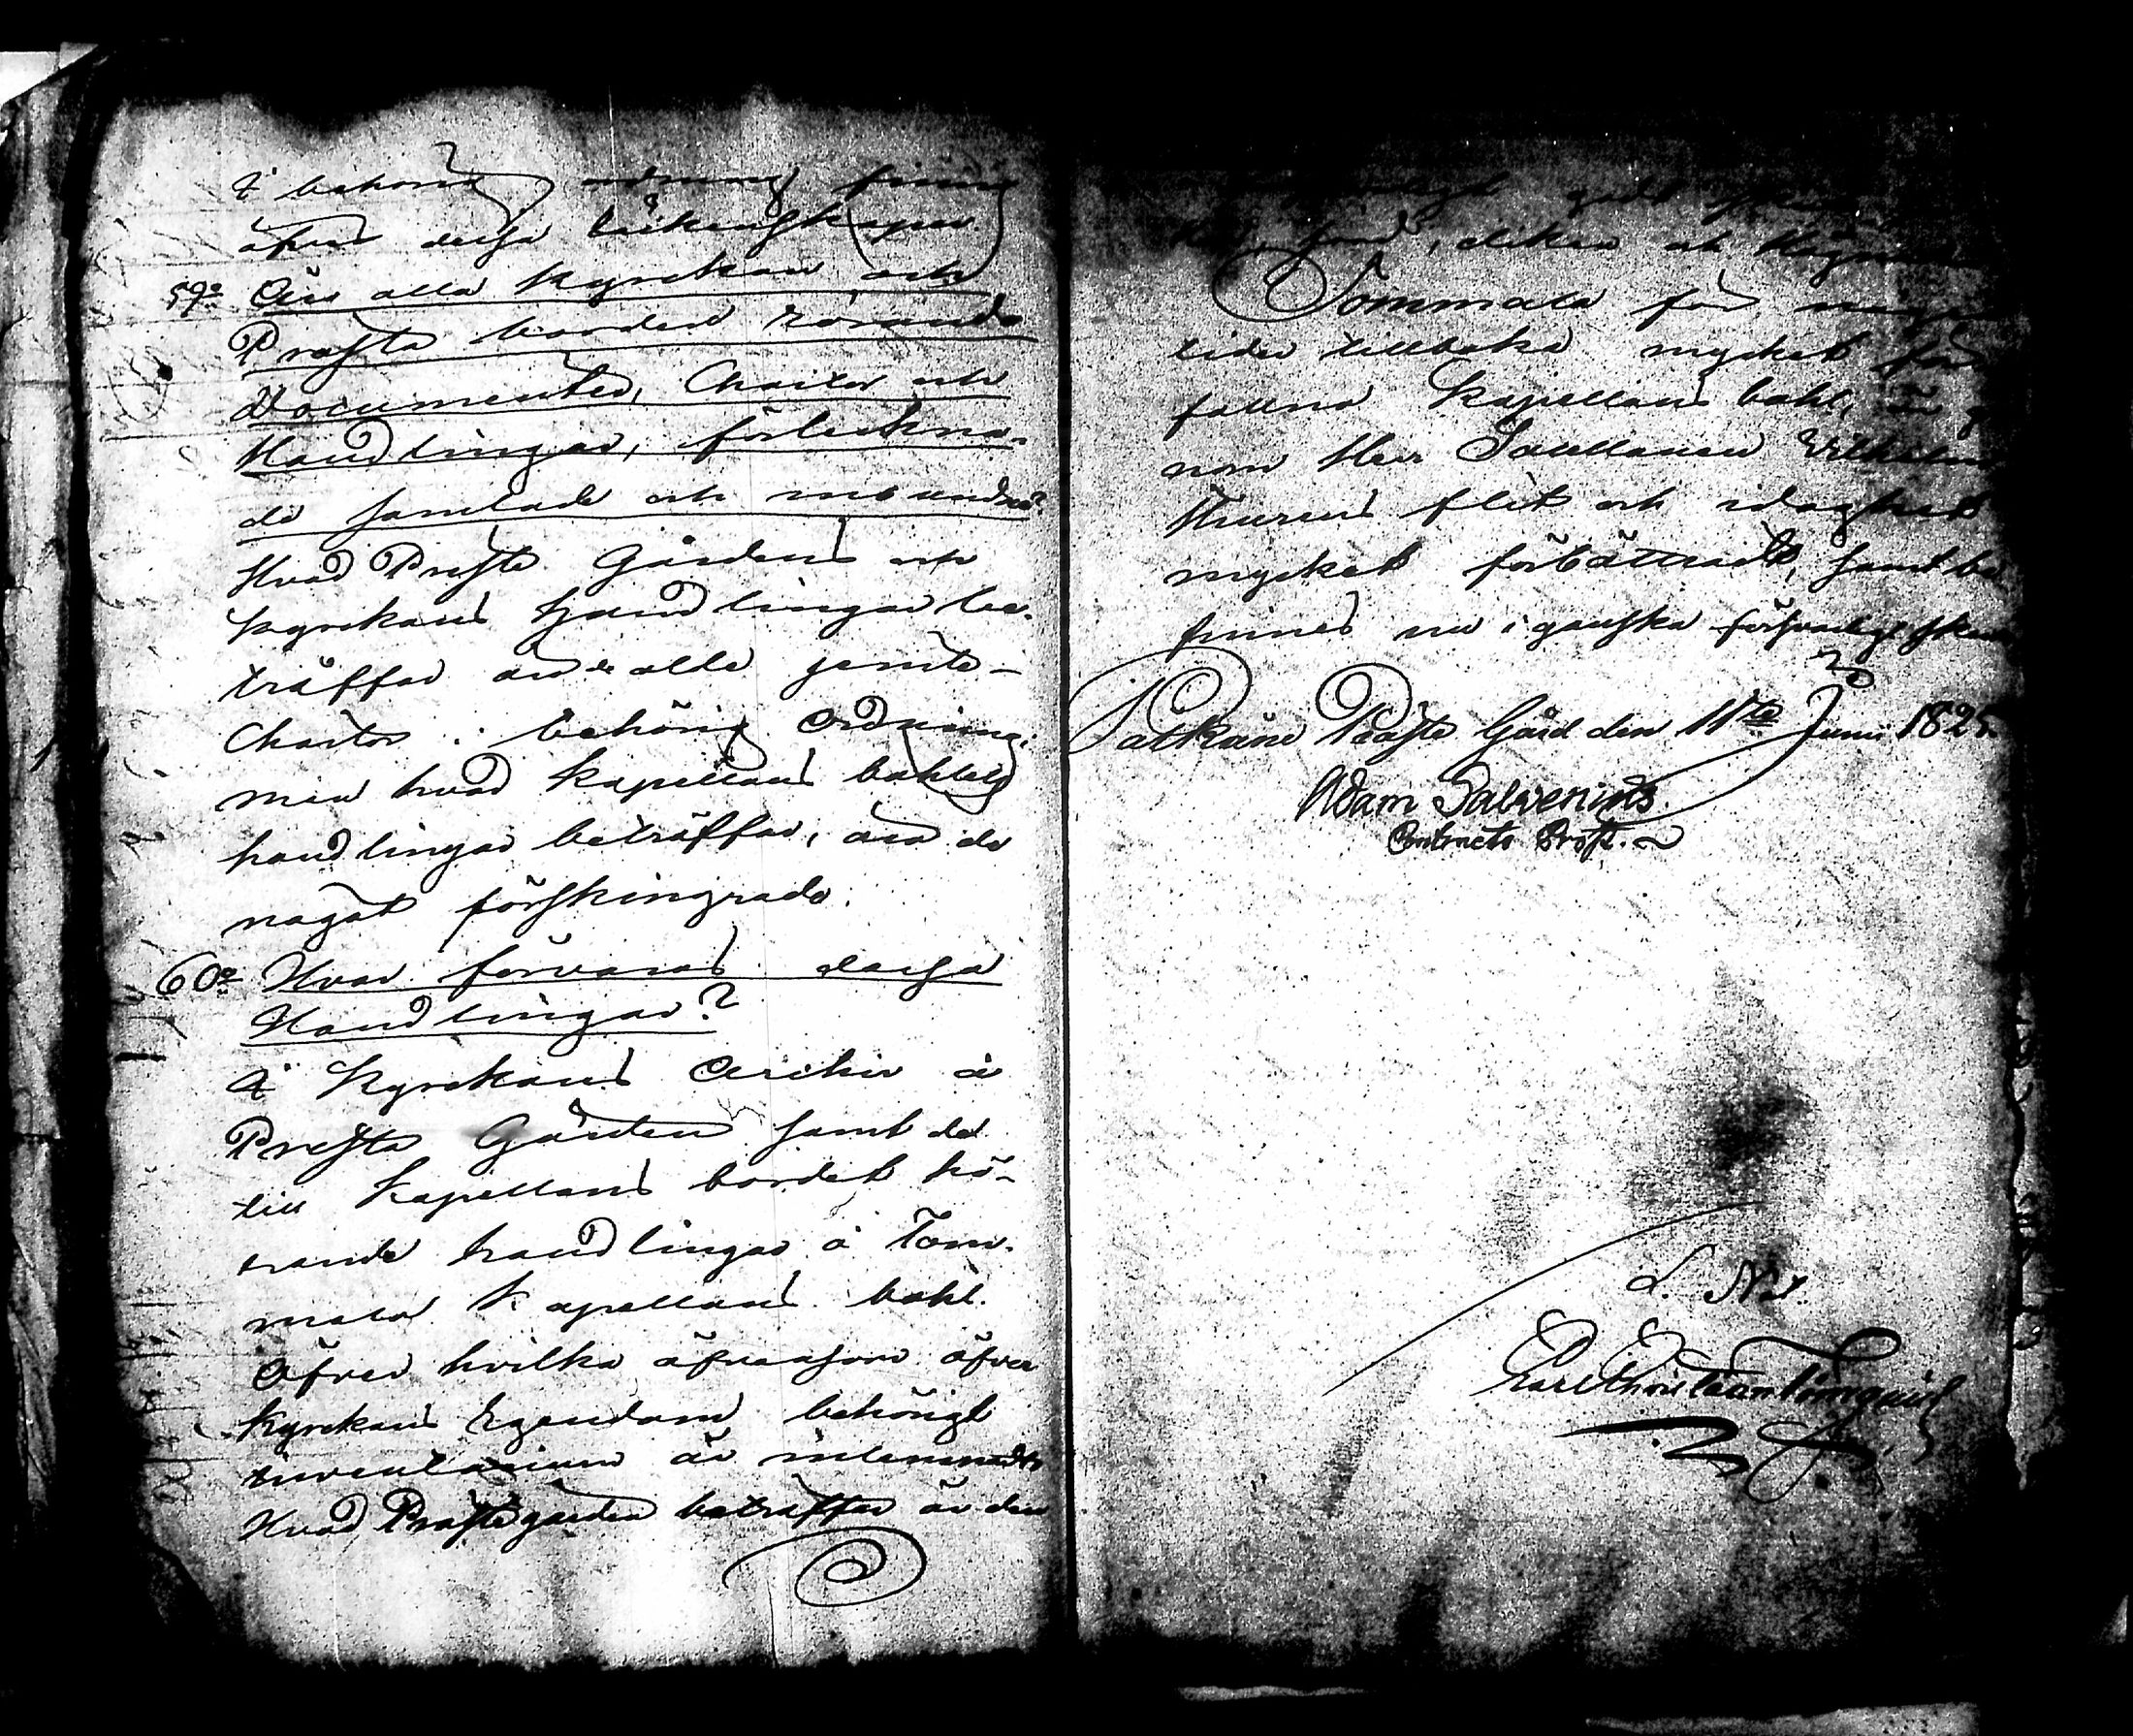 I behörig ordning finnes
äfven dessa Räkenskaper.
59o Äro alla Kyrckan och
Præsta bordet rörande
Documenter, Chartor och
Handlingar, förteckna-
de samlade och inbundne?
Hvad Præste Gårdens och
Kyrckans Handlingar be-
träffar äro de alla jemte
Chartor i behörig Ordning;
men hvad Kapellans bohlets
handlingar beträffar, äro de
något förskingrade.
60o Hvar förvaras dessa
Handlingar?
I Kyrckans Archiv å
Præsta Gården samt de
till Kapellans bordet hö-
rande handlingar å Tom-
mola Kapellans bohl.
Öfver hvilka äfvensom öfver
Kyrckans Egendom behörigt
Inventarium är inlemnadt.
Hvad Præstegården beträffar är den
godt
diken och
Tommola för
tider tillbaka mycket för
fallna Kapellans bohl, är g
nom Herr Sacellanen Vilhelm
Thurens flit och idoghet
mycket förbättradt, samt be
finnes nu i ganska försvarligt skick
Pälkäne Præste Gård den 11te Junii 1825.
Adam Salvenius.
Contracts Prost.
Carl Christian Törnqvist